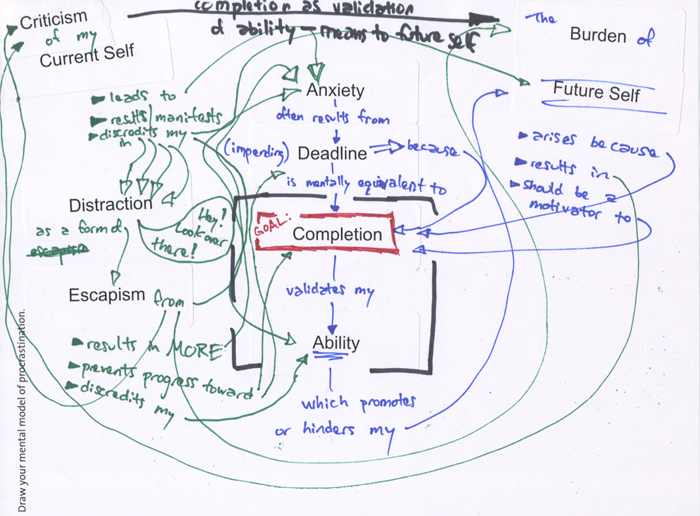 completion as validation
of ability — means to future self
Criticism
of my
Current Self
The
Burden of
Future Self
leads to
results/manifests
in
discredits my
Anxiety
often results from
(impending) Deadline
because
is mentally equivalent to
arises because
results in
should be a
motivator to
Distraction
as a form of
Hey!
Look over
there!
GOAL:
Completion
Escapism from
validates my
results in MORE
prevents progress toward
discredits my
Ability
which promotes
or hinders my
Draw your mental model of procrastination.